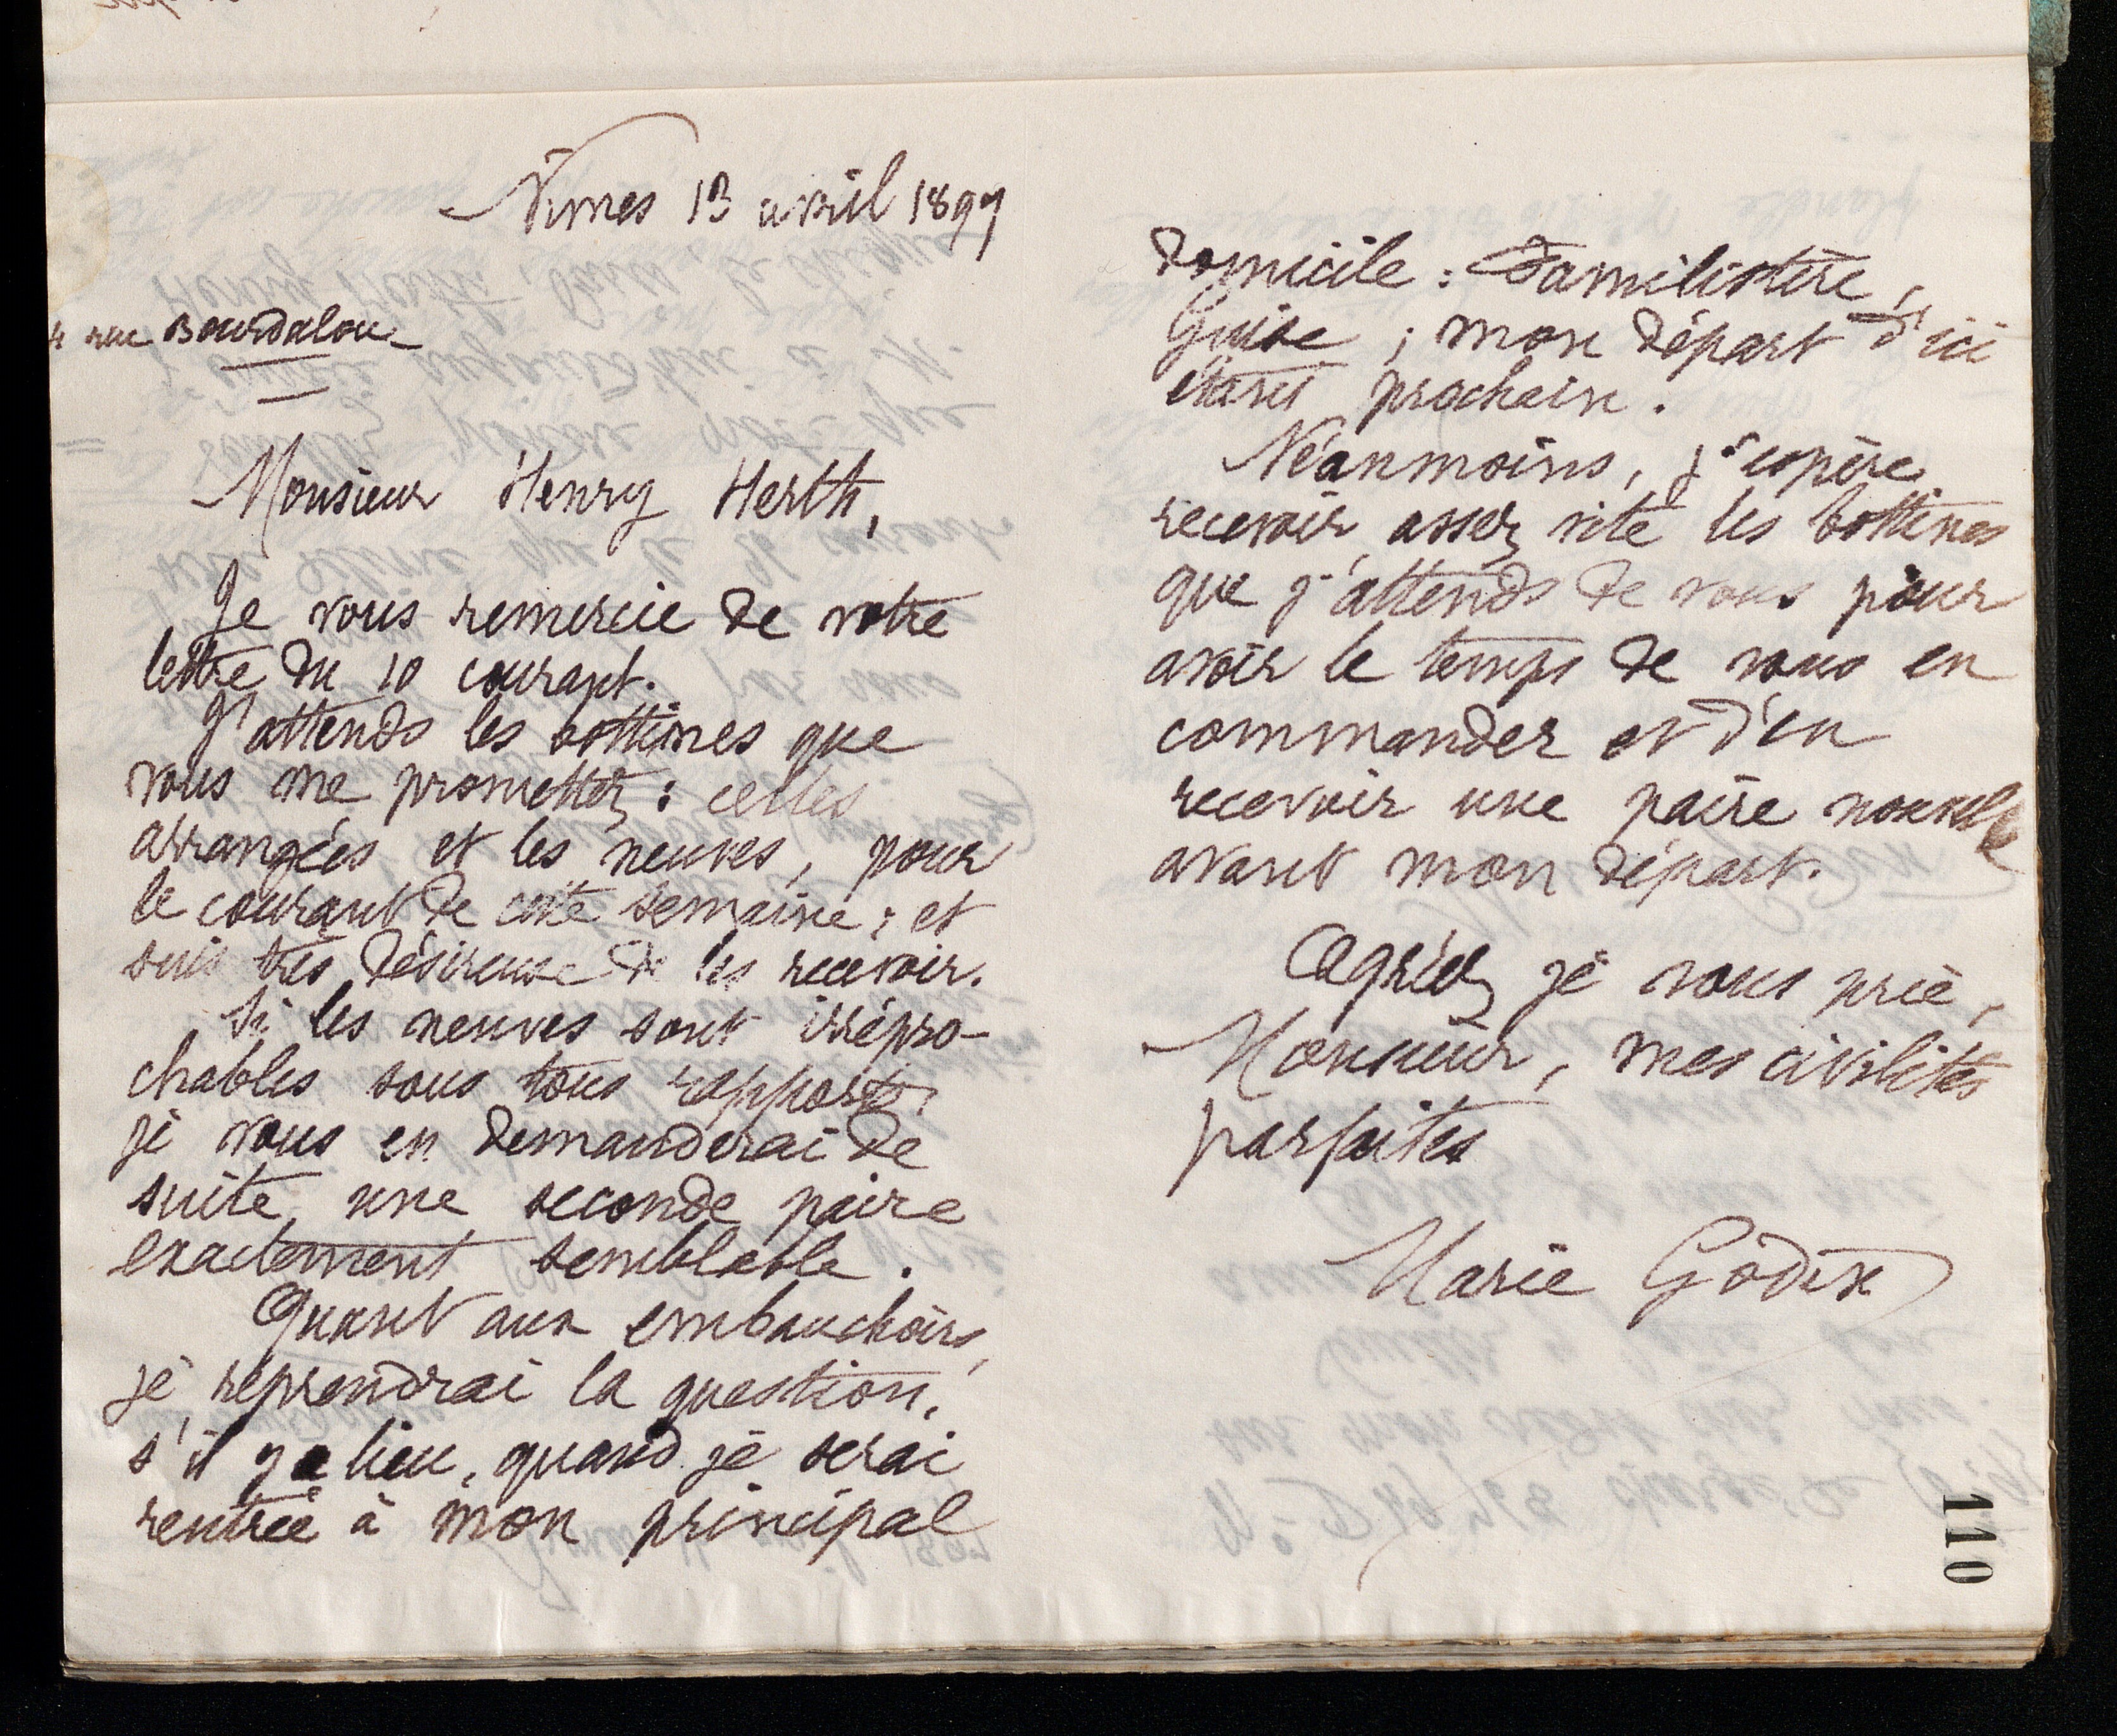 Nimes 13 avril 1897
4 rue Bourdaloue
Monsieur Henry Herth,
Je vous remercie de votre
lettre du 10 courant.
J'attends les bottines que
vous me promettez : celles
arrangées et les neuves, pour
le courant de cette semaine ; et
suis très désireuse de les recevoir.
Si les neuves sont irrépro-
chables sous tous rapports,
je vous en demanderai de
suite une seconde paire
exactement semblable.
Quant aux embauchoirs,
je reprendrai la question,
s'il y a lieu, quand je serai
rentrée à mon principal
domicile : Familistère,
Guise ; mon départ d'ici
étant prochain.
Néanmoins, j'espère
recevoir assez vite les bottines
que j'attends de vous pour
avoir le temps de vous en
commander et d'en
recevoir une paire nouvelle
avant mon départ.
Agréez je vous prie,
Monsieur, mes civilités
parfaites
Marie Godin
110